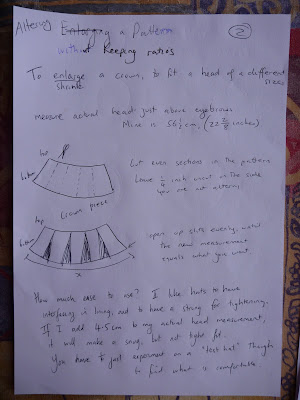 Altering Enlarging a Pattern
without keeping ratios
2
To enlarge a crown, to fit a head of a different
shrink
size
measure actual head just above eyebrows
Mine is 56½ cm, (22 2/8 inches)
top
bottom
Crown piece
Cut even sections in the pattern
Leave ¼ inch uncut on the side
you are not altering
top
bottom
x
open up slits evenly, until
the new measurement
equals what you want
How much ease to use? I like hats to have
interfacing & lining, and to have a string for tightening.
If I add 4.5cm to my actual head measurement,
it will make a snug, but not tight fit.
You have to just experiment on a "test hat" though
to find what is comfortable.